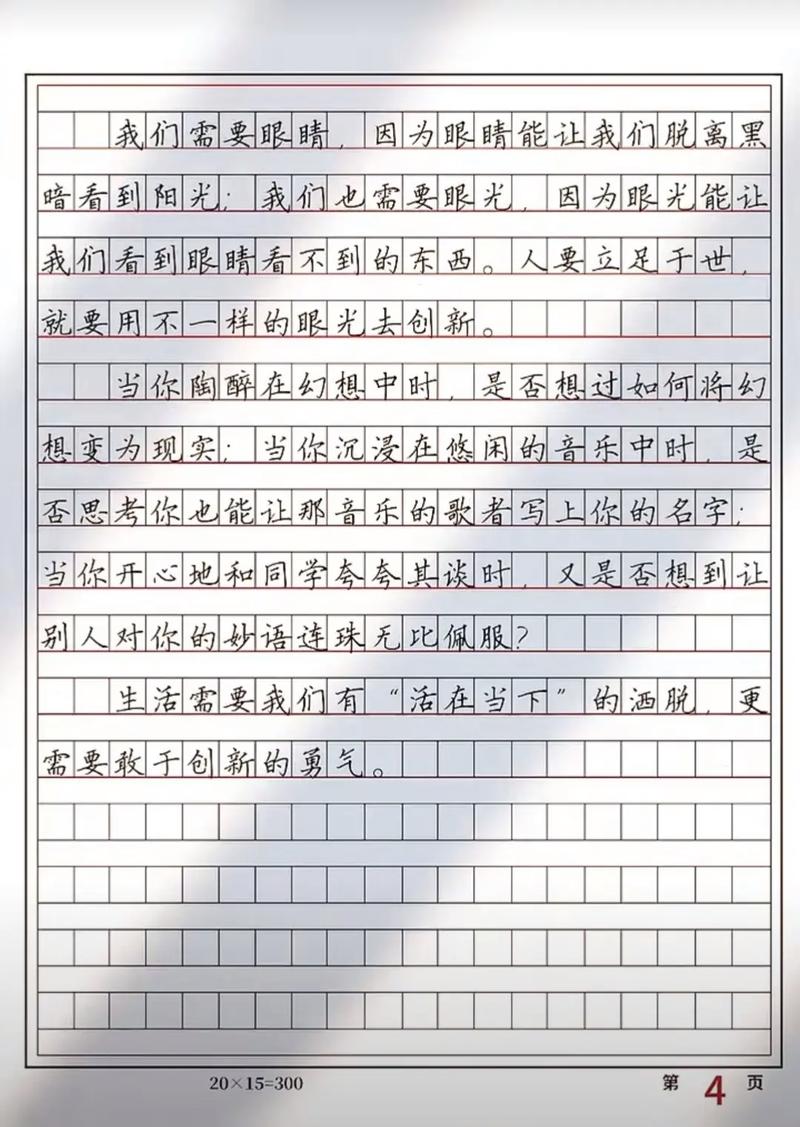 我们需要眼睛，因为眼睛能让我们脱离黑
暗看到阳光；我们也需要眼光，因为眼光能让
我们看到眼睛看不到的东西。人要立足于世，
就要用不一样的眼光去创新。
当你陶醉在幻想中时，是否想过如何将幻
想变为现实；当你沉浸在悠闲的音乐中时，是
否思考你也能让那音乐的歌者写上你的名字；
当你开心地和同学夸夸其谈时，又是否想到让
别人对你的妙语连珠无比佩服？
生活需要我们有“活在当下”的洒脱，更
需要敢于创新的勇气。
20×15=300
第 4 页